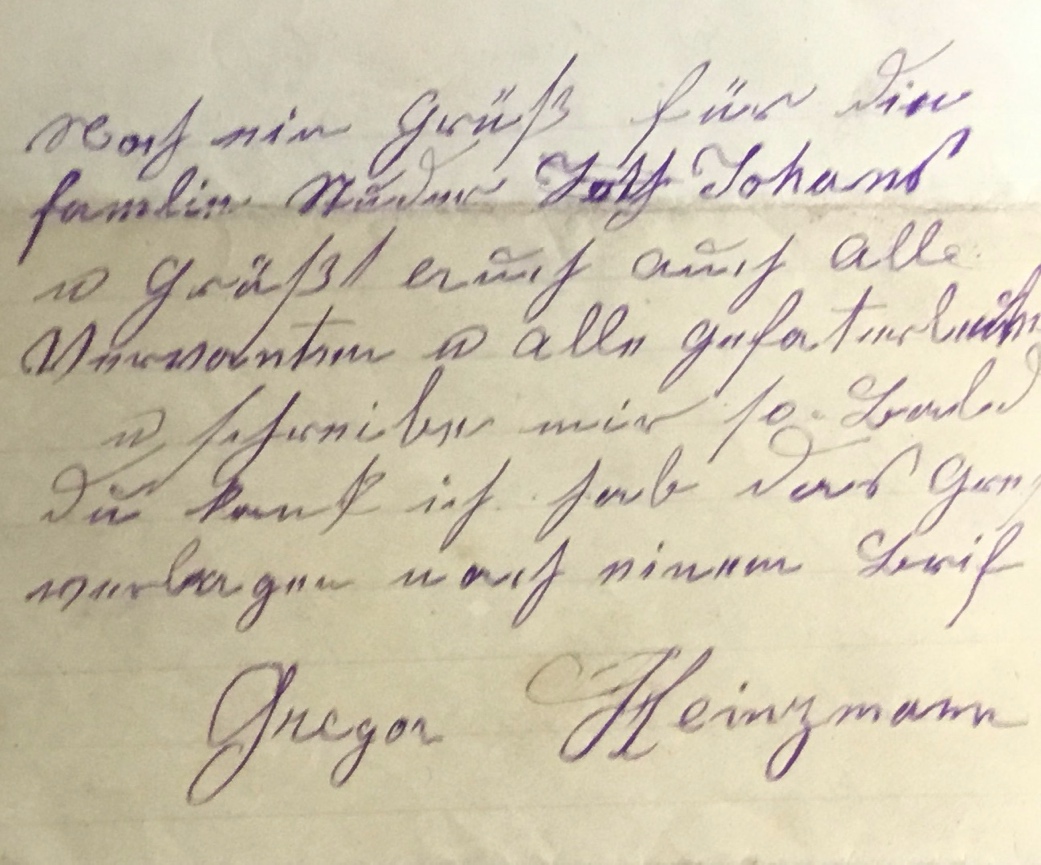 Noch ein Grüß für die
familie Studer Johans
u Grüßt euch auch alle
Verwanten u alle gefaterleute
u schreibe mir so Bald
du kanst ich hab das Gros
verlagen nach einem Brif
Gregor Heinzmann